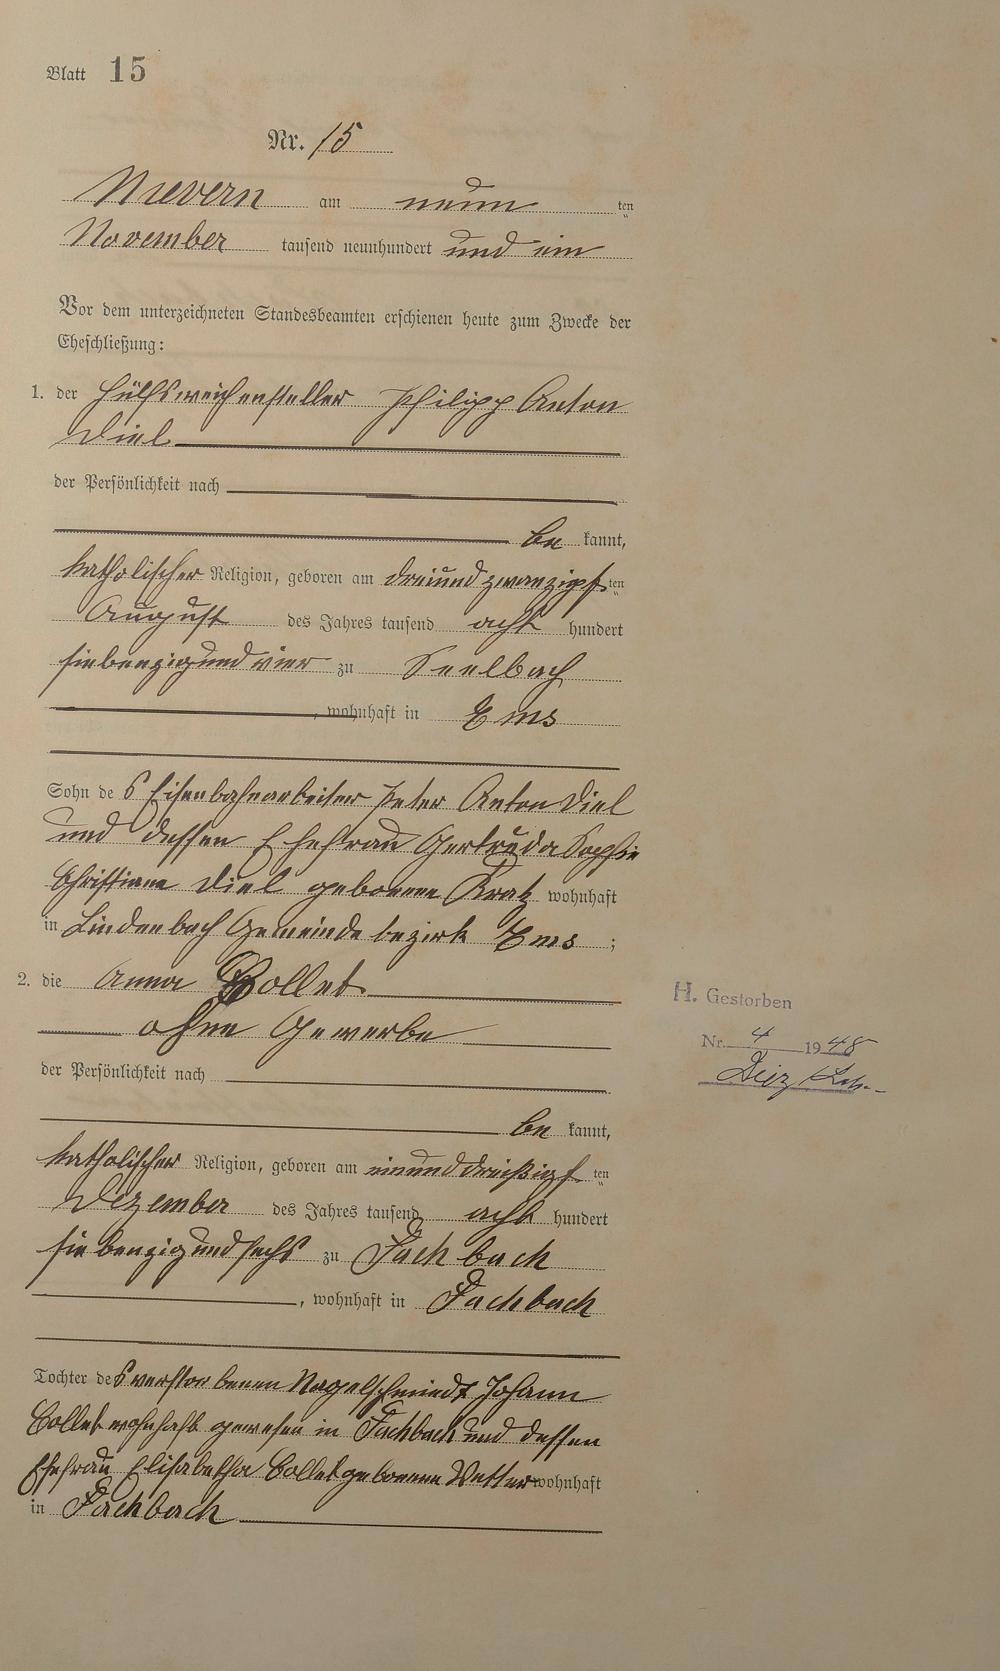 Blatt 15
Nr. 15
Nievern am neun ten
November tausend neunhundert und ein
Vor dem unterzeichneten Standesbeamten erschienen heute zum Zwecke der
Eheschließung:
1. der Hülfsweichensteller Philipp Anton
Diel
der Persönlichkeit nach
be kannt,
katholischer Religion, geboren am dreiundzwanzigst ten
August des Jahres tausend acht hundert
siebenzig und vier zu Seelbach
, wohnhaft in Ems
Sohn de s Eisenbahnarbeiter Peter Anton Diel
und dessen Ehefrau Gertruda Sophie
Christiane Diel geborene Kratz wohnhaft
in Lindenbach Gemeindebezirk Ems ;
2. die Anna Collet
ohne Gewerbe
der Persönlichkeit nach
be kannt,
katholischer Religion, geboren am einunddreißigst ten
Dezember des Jahres tausend acht hundert
siebenzig und sechs zu Fachbach
, wohnhaft in Fachbach
H. Gestorben
Nr. 4 1948
Diez
Tochter de s verstorbenen Nagelschmiedt Johann
Collet wohnhaft gewesen in Fachbach und dessen
Ehefrau Elisabetha Collet geborene Vetter wohnhaft
in Fachbach